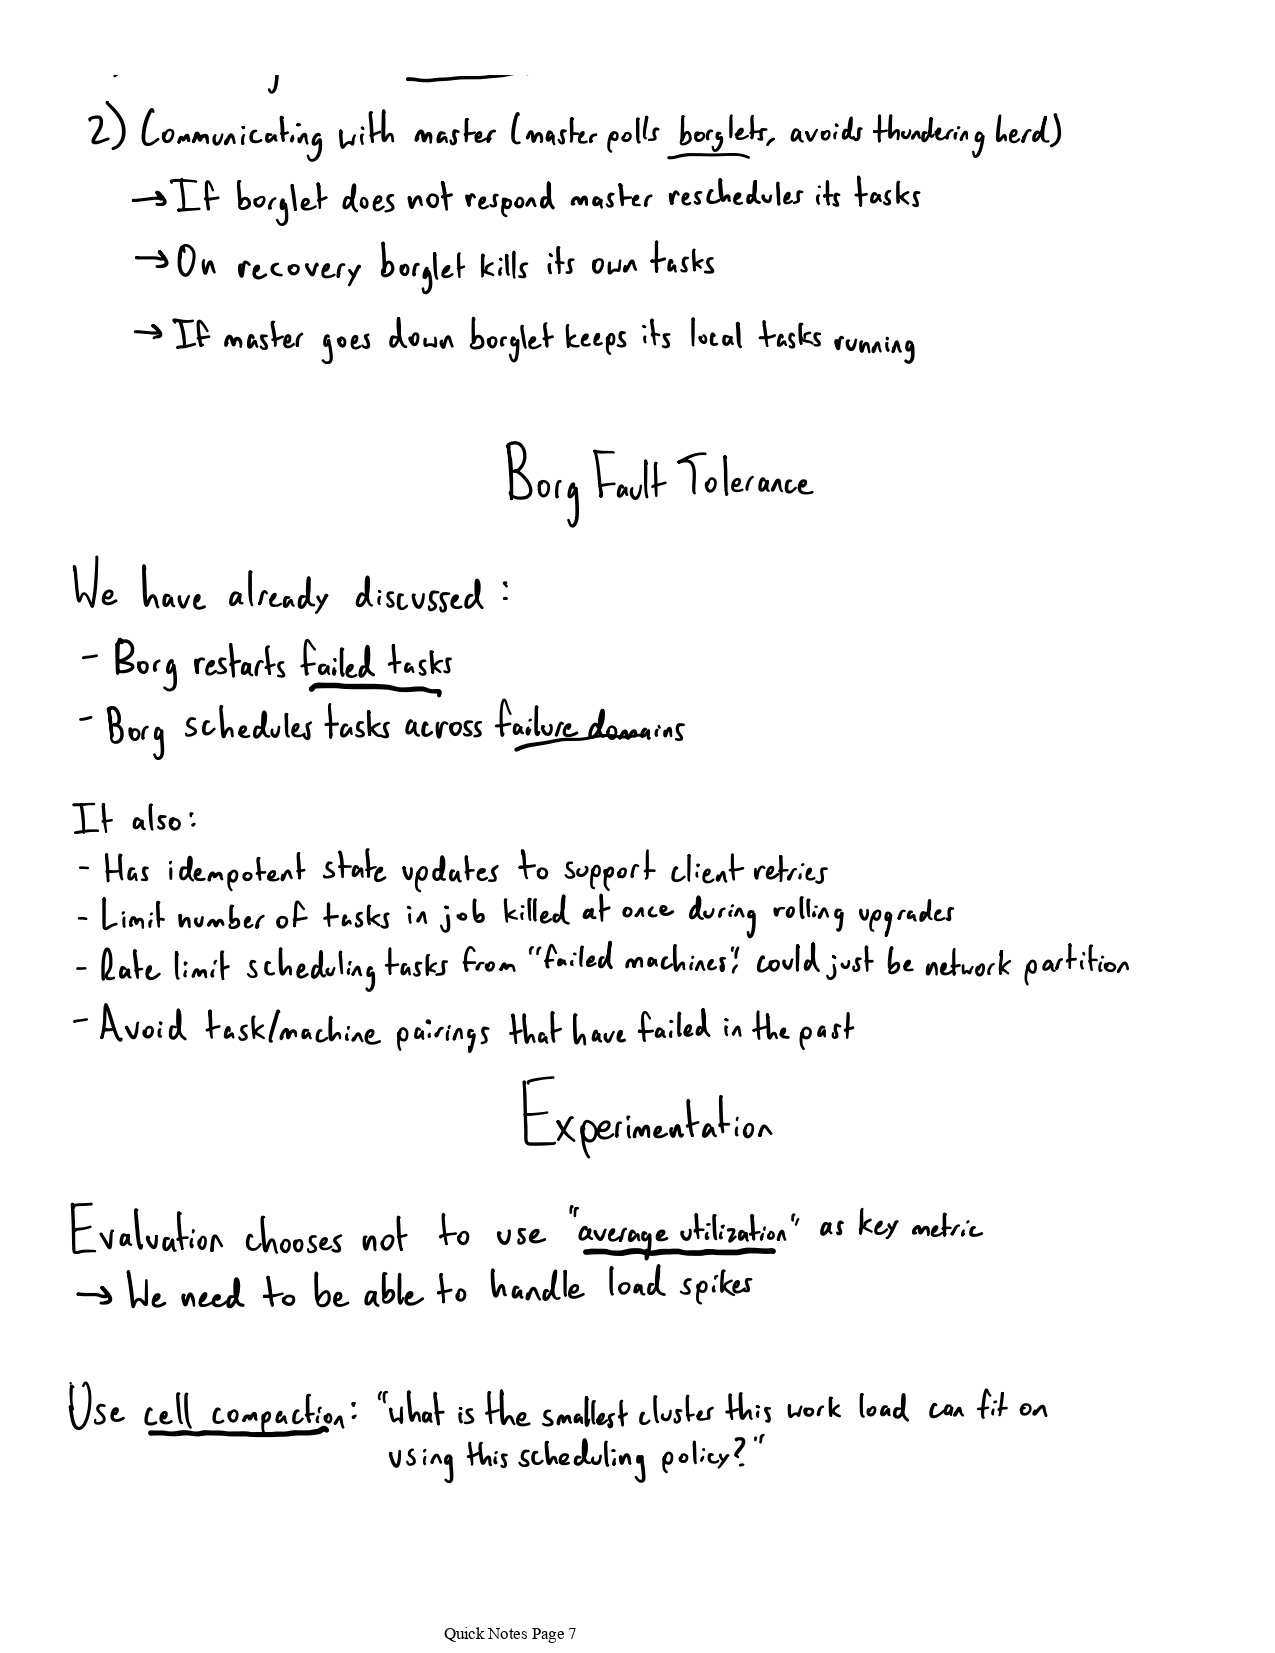 2) Communicating with master (master polls borglets, avoids thundering herd)
→ If borglet does not respond master reschedules its tasks
→ On recovery borglet kills its own tasks
→ If master goes down borglet keeps its local tasks running
Borg Fault Tolerance
We have already discussed:
- Borg restarts failed tasks
- Borg schedules tasks across failure domains
It also:
- Has idempotent state updates to support client retries
- Limit number of tasks in job killed at once during rolling upgrades
- Rate limit scheduling tasks from "failed machines", could just be network partition
- Avoid task/machine pairings that have failed in the past
Experimentation
Evaluation chooses not to use "average utilization" as key metric
→ We need to be able to handle load spikes
Use cell compaction: "what is the smallest cluster this work load can fit on
using this scheduling policy?"
Quick Notes Page 7